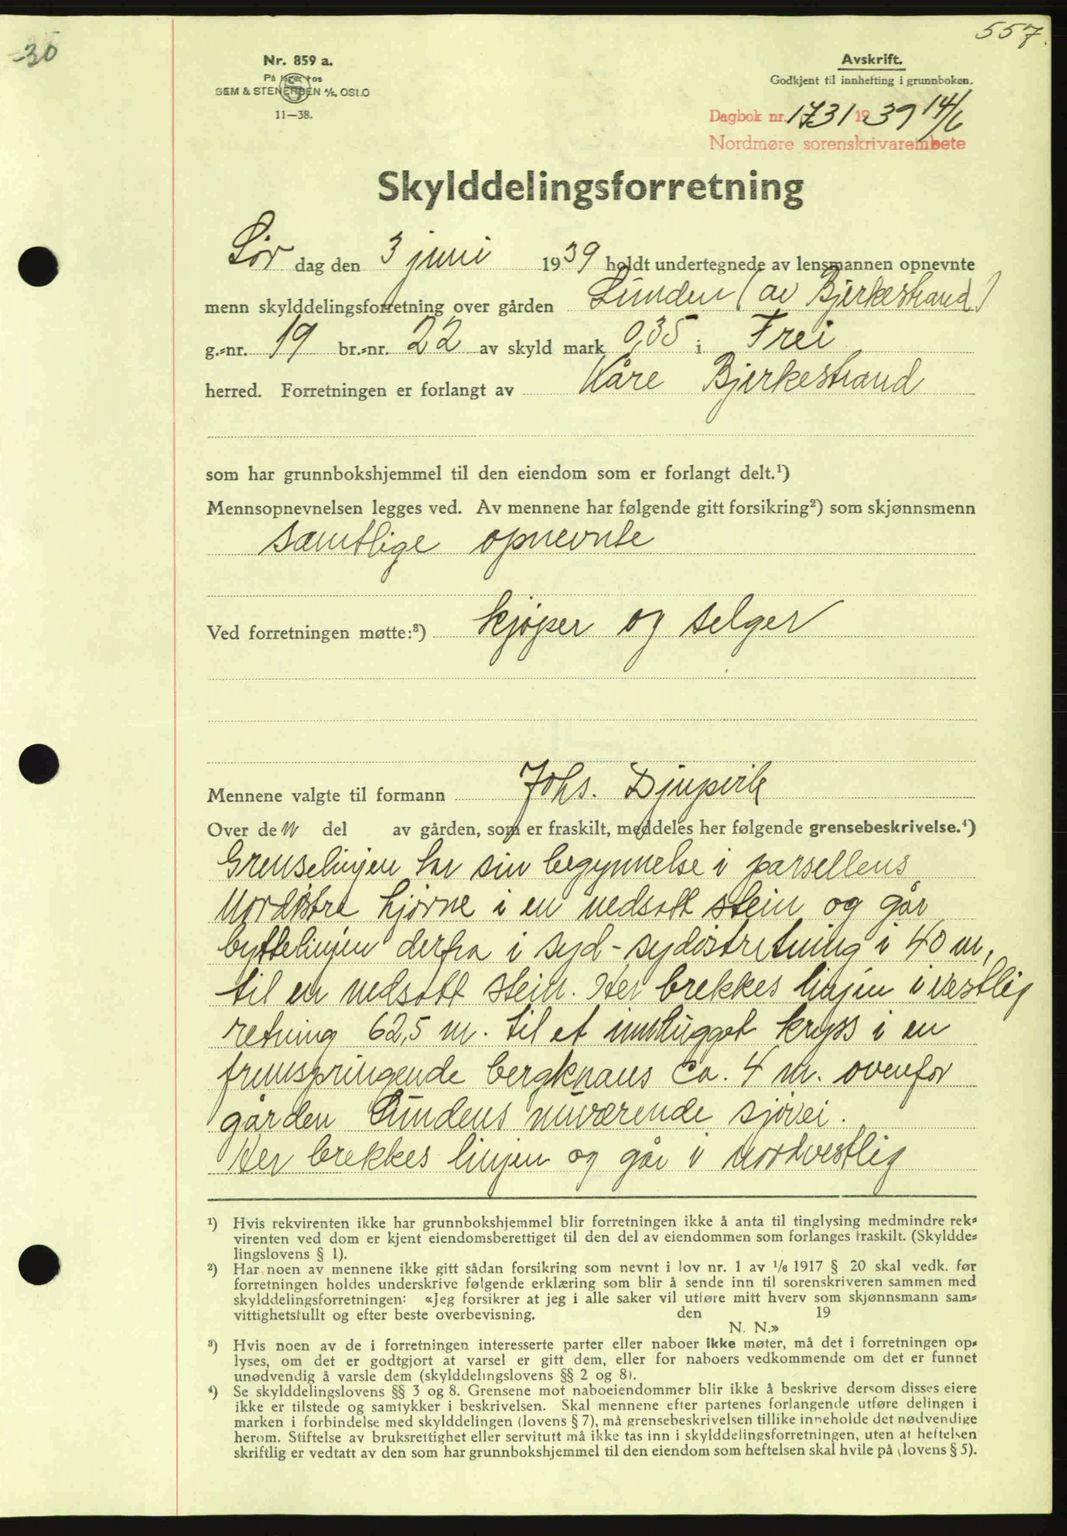 557.
30
Nr. 859 a.
SEM & STENERSEN A/S, OSLO
11—38.
Avskrift.
Godkjent til innhefting i grunnboken.
Dagbok nr. 1731 1939 14/6
Nordmøre sorenskrivarembete
Skylddelingsforretning
Lør dag den 3 juni 1939 holdt undertegnede av lensmannen opnevnte
menn skylddelingsforretning over gården Lunden (av Bjerkestrand)
g.-nr. 19 br.-nr. 22 av skyld mark 0,35 i Frei
herred. Forretningen er forlangt av Kåre Bjerkestrand
som har grunnbokshjemmel til den eiendom som er forlangt delt.¹)
Mennsopnevnelsen legges ved. Av mennene har følgende gitt forsikring²) som skjønnsmenn
samtlige opnevnte
Ved forretningen møtte:³) kjøper og selger
Mennene valgte til formann Johs. Djupvik
Over den del av gården, som er fraskilt, meddeles her følgende grensebeskrivelse.⁴)
Grenselinjen har sin begynnelse i parsellens
Nordøstre hjørne i en nedsatt stein og går
byttelinjen derfra i syd-sydøstretning i 40 m,
til en nedsatt stein. Her brekkes linjen i vestlig
retning 62,5 m. til et innhugget kryss i en
fremspringende bergknaus ca. 4 m. ovenfor
gården Lundens nuværende sjøvei.
Her brekkes linjen og går i nordvestlig
¹) Hvis rekvirenten ikke har grunnbokshjemmel blir forretningen ikke å anta til tinglysing medmindre rek-
virenten ved dom er kjent eiendomsberettiget til den del av eiendommen som forlanges fraskilt. (Skyldde-
lingslovens § 1).
²) Har noen av mennene ikke gitt sådan forsikring som nevnt i lov nr. 1 av 1/6 1917 § 20 skal vedk. før
forretningen holdes underskrive følgende erklæring som blir å sende inn til sorenskriveren sammen med
skylddelingsforretningen: «Jeg forsikrer at jeg i alle saker vil utføre mitt hverv som skjønnsmann sam-
vittighetsfullt og efter beste overbevisning. den 19
N. N.»
³) Hvis noen av de i forretningen interesserte parter eller naboer ikke møter, må det i forretningen op-
lyses, om det er godtgjort at varsel er gitt dem, eller for naboers vedkommende om det er funnet
unødvendig å varsle dem (skylddelingslovens §§ 2 og 8).
⁴) Se skylddelingslovens §§ 3 og 8. Grensene mot naboeiendommer blir ikke å beskrive dersom disses eiere
ikke er tilstede og samtykker i beskrivelsen. Skal mennene efter partenes forlangende utføre delingen i
marken i forbindelse med skylddelingen (lovens § 7), må grensebeskrivelsen tillike inneholde det nødvendige
herom. Stiftelse av bruksrettighet eller servitutt må ikke tas inn i skylddelingsforretningen, uten at heftelsen
skriftlig er vedtatt av den som har grunnbokshjemmel til den eiendom som heftelsen skal hvile på (lovens § 5).